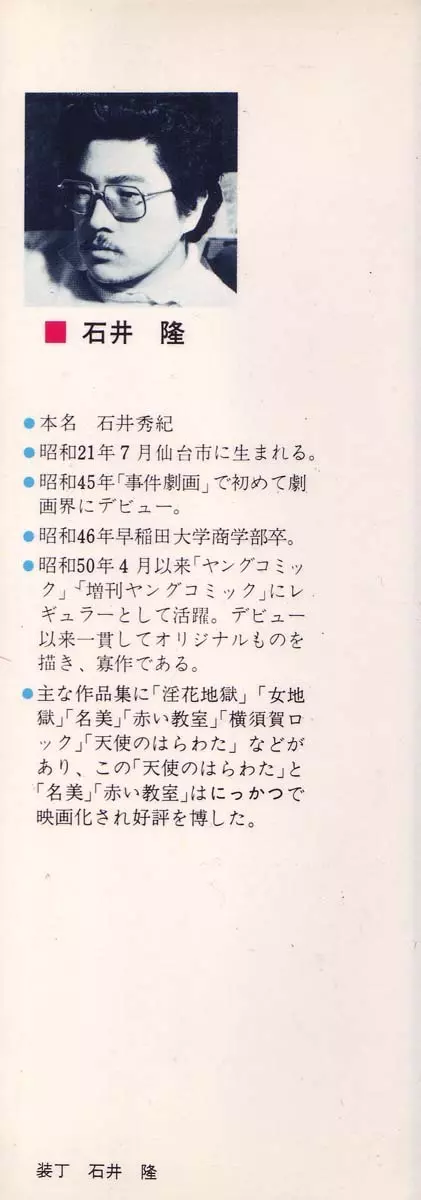 ■ 石井 隆
●本名 石井秀紀
●昭和21年7月仙台市に生まれる。
●昭和45年「事件劇画」で初めて劇
画界にデビュー。
●昭和46年早稲田大学商学部卒。
●昭和50年4月以来「ヤングコミッ
ク」「増刊ヤングコミック」にレ
ギュラーとして活躍。デビュー
以来一貫してオリジナルものを
描き、寡作である。
●主な作品集に「淫花地獄」「女地
獄」「名美」「赤い教室」「横須賀ロ
ック」「天使のはらわた」などが
あり、この「天使のはらわた」と
「名美」「赤い教室」はにっかつで
映画化され好評を博した。
装丁 石井 隆